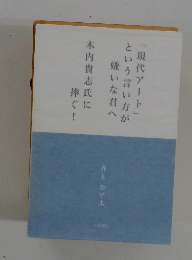 「現代アート」
という言い方が
嫌いな君へ
木内貴志氏に
捧ぐ！